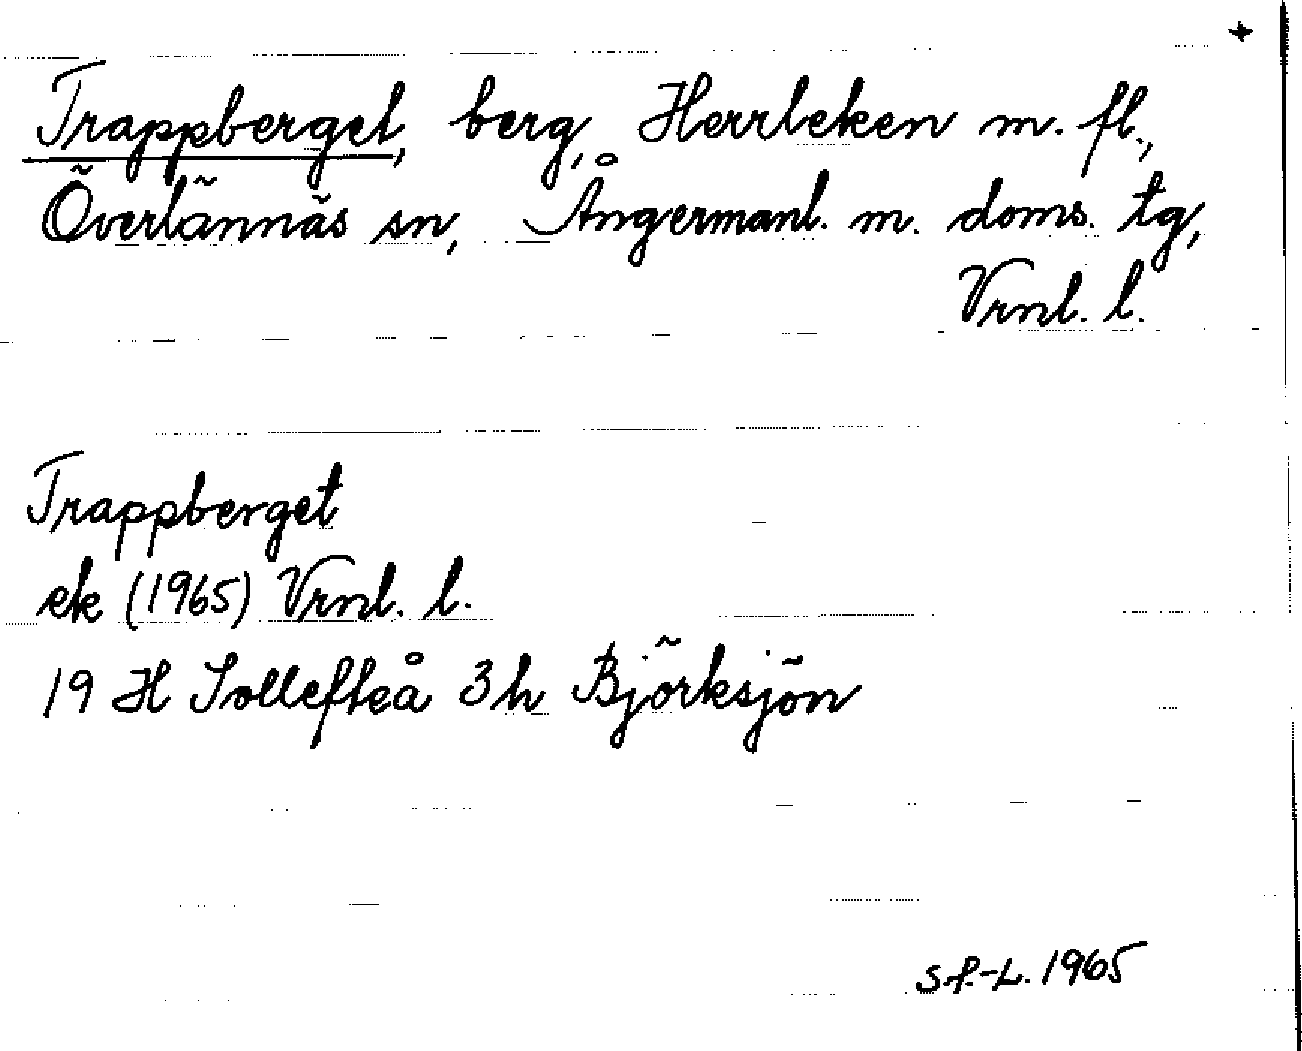 +
Trappberget, berg, Herrleken m. fl.,
Överlännäs sn, Ångermanl. m. doms. tg,
Vrnl. l.
Trappberget
ek (1965) Vrnl. l.
19 H Sollefteå 3h Björksjön
S.P.-L. 1965